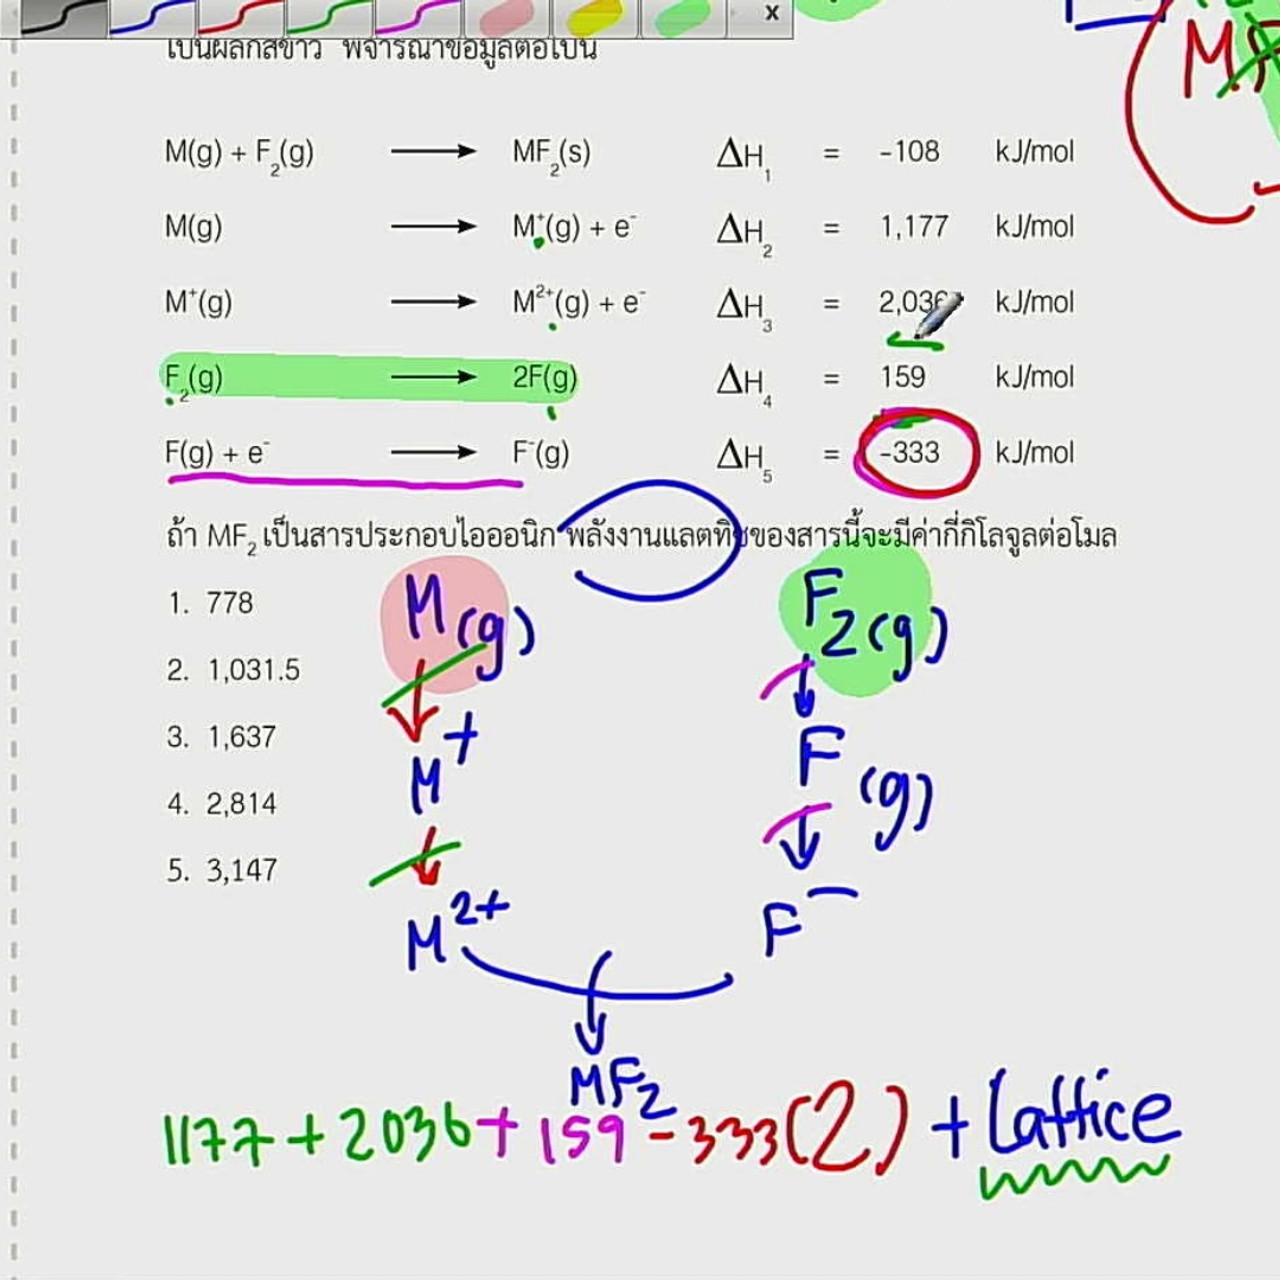 x
เป็นผลึกสีขาว พิจารณาข้อมูลต่อไปนี้
M(g) + F₂(g) ⟶ MF₂(s) ΔH₁ = -108 kJ/mol
M(g) ⟶ M⁺(g) + e⁻ ΔH₂ = 1,177 kJ/mol
M⁺(g) ⟶ M²⁺(g) + e⁻ ΔH₃ = 2,036 kJ/mol
F₂(g) ⟶ 2F(g) ΔH₄ = 159 kJ/mol
F(g) + e⁻ ⟶ F⁻(g) ΔH₅ = -333 kJ/mol
ถ้า MF₂ เป็นสารประกอบไอออนิก พลังงานแลตทิซของสารนี้จะมีค่ากี่กิโลจูลต่อโมล
1. 778
2. 1,031.5
3. 1,637
4. 2,814
5. 3,147
M(g) F₂(g)
M⁺ F(g)
M²⁺ F⁻
MF₂
1177 + 2036 + 159 - 333(2) + Lattice